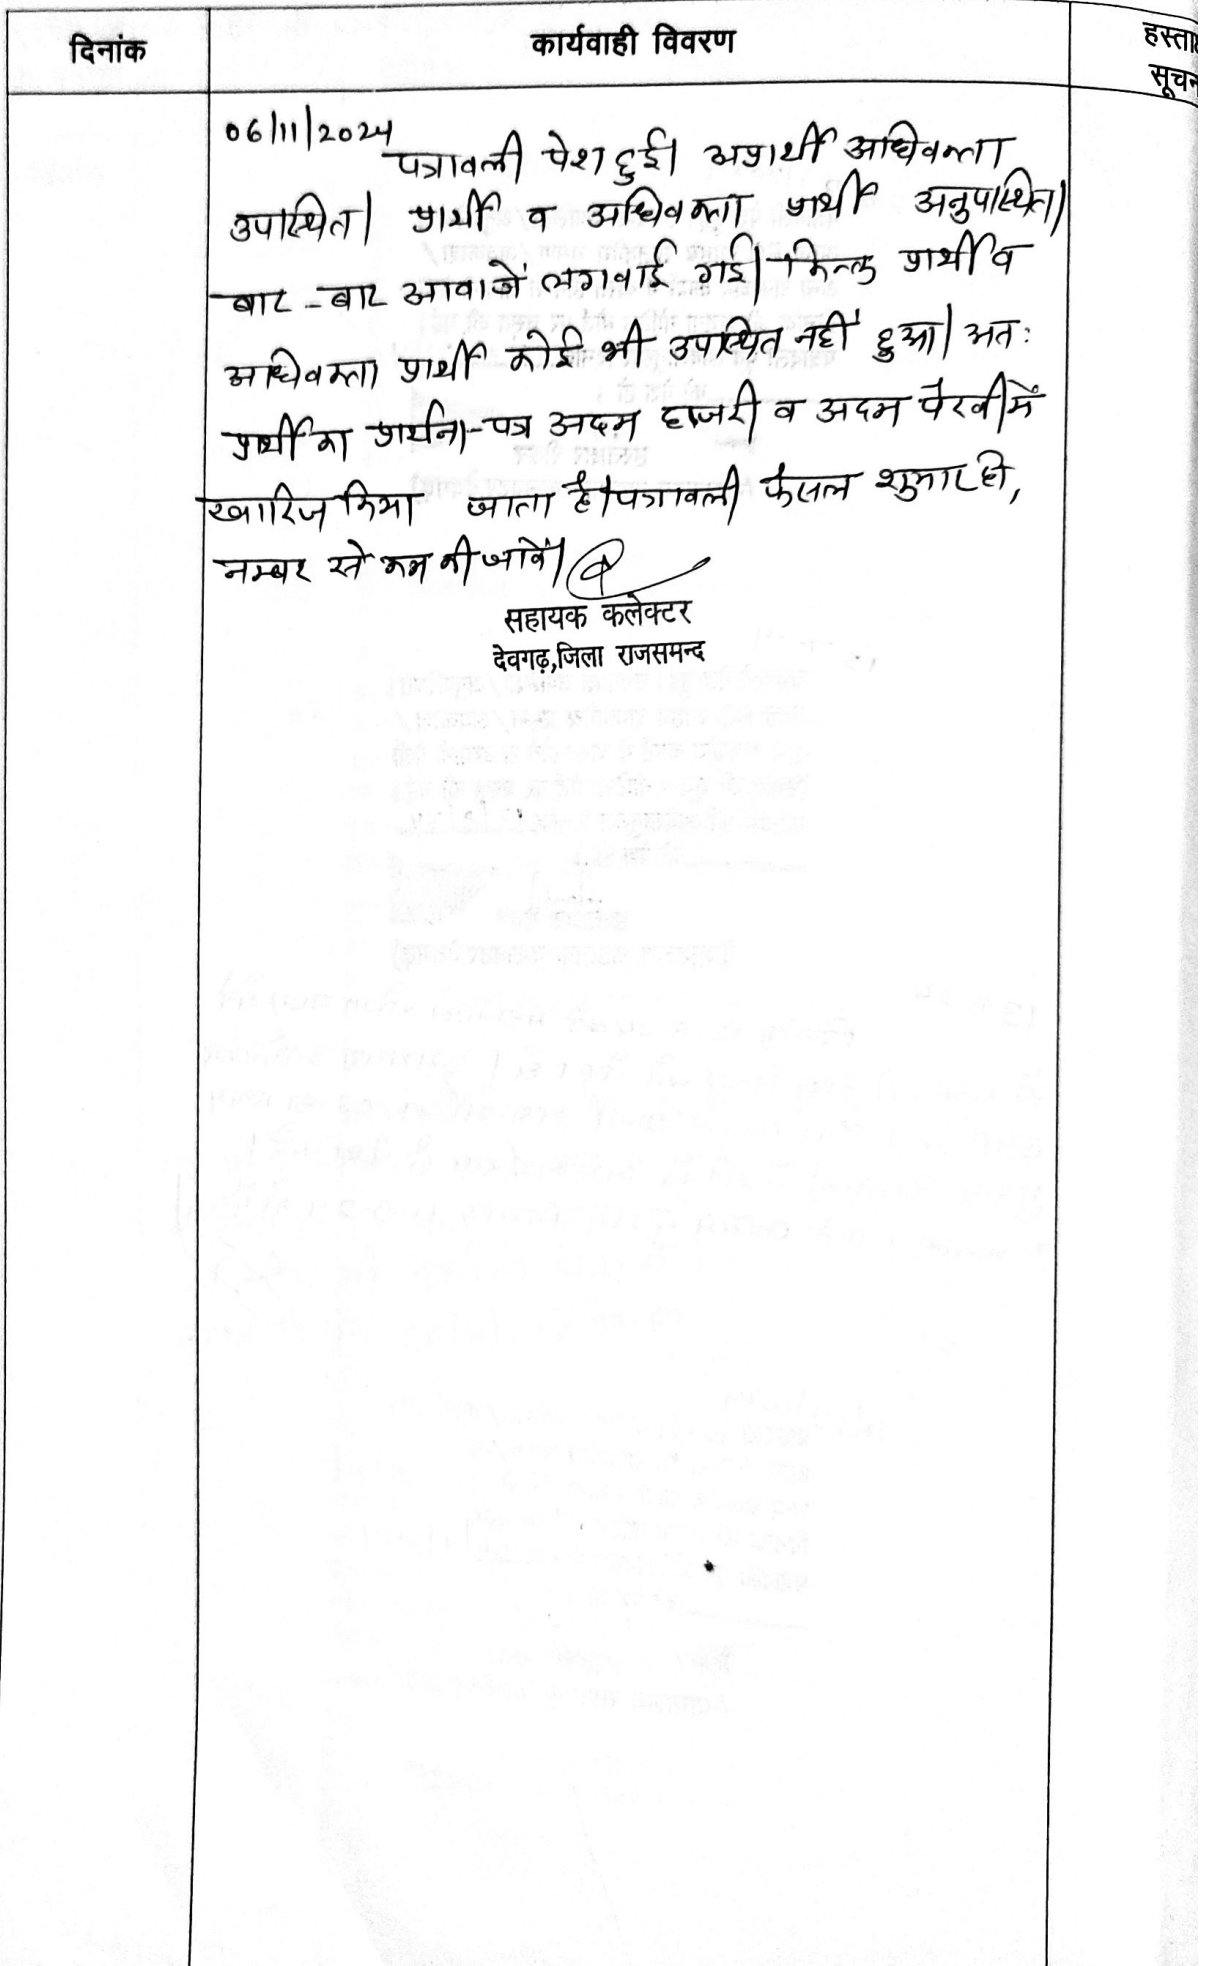 दिनांक
कार्यवाही विवरण
हस्ता
सूचन
06/11/2024
पत्रावली पेश हुई। अप्रार्थी अधिवक्ता
उपस्थित। प्रार्थी व अधिवक्ता प्रार्थी अनुपस्थित।
बार-बार आवाजें लगवाई गई। किन्तु प्रार्थी व
अधिवक्ता प्रार्थी कोई भी उपस्थित नहीं हुआ। अतः
प्रार्थी का प्रार्थना-पत्र अदम हाजरी व अदम पैरवी में
खारिज किया जाता है। पत्रावली फैसल शुमार हो,
नम्बर से कम की जावें।
सहायक कलेक्टर
देवगढ़,जिला राजसमन्द